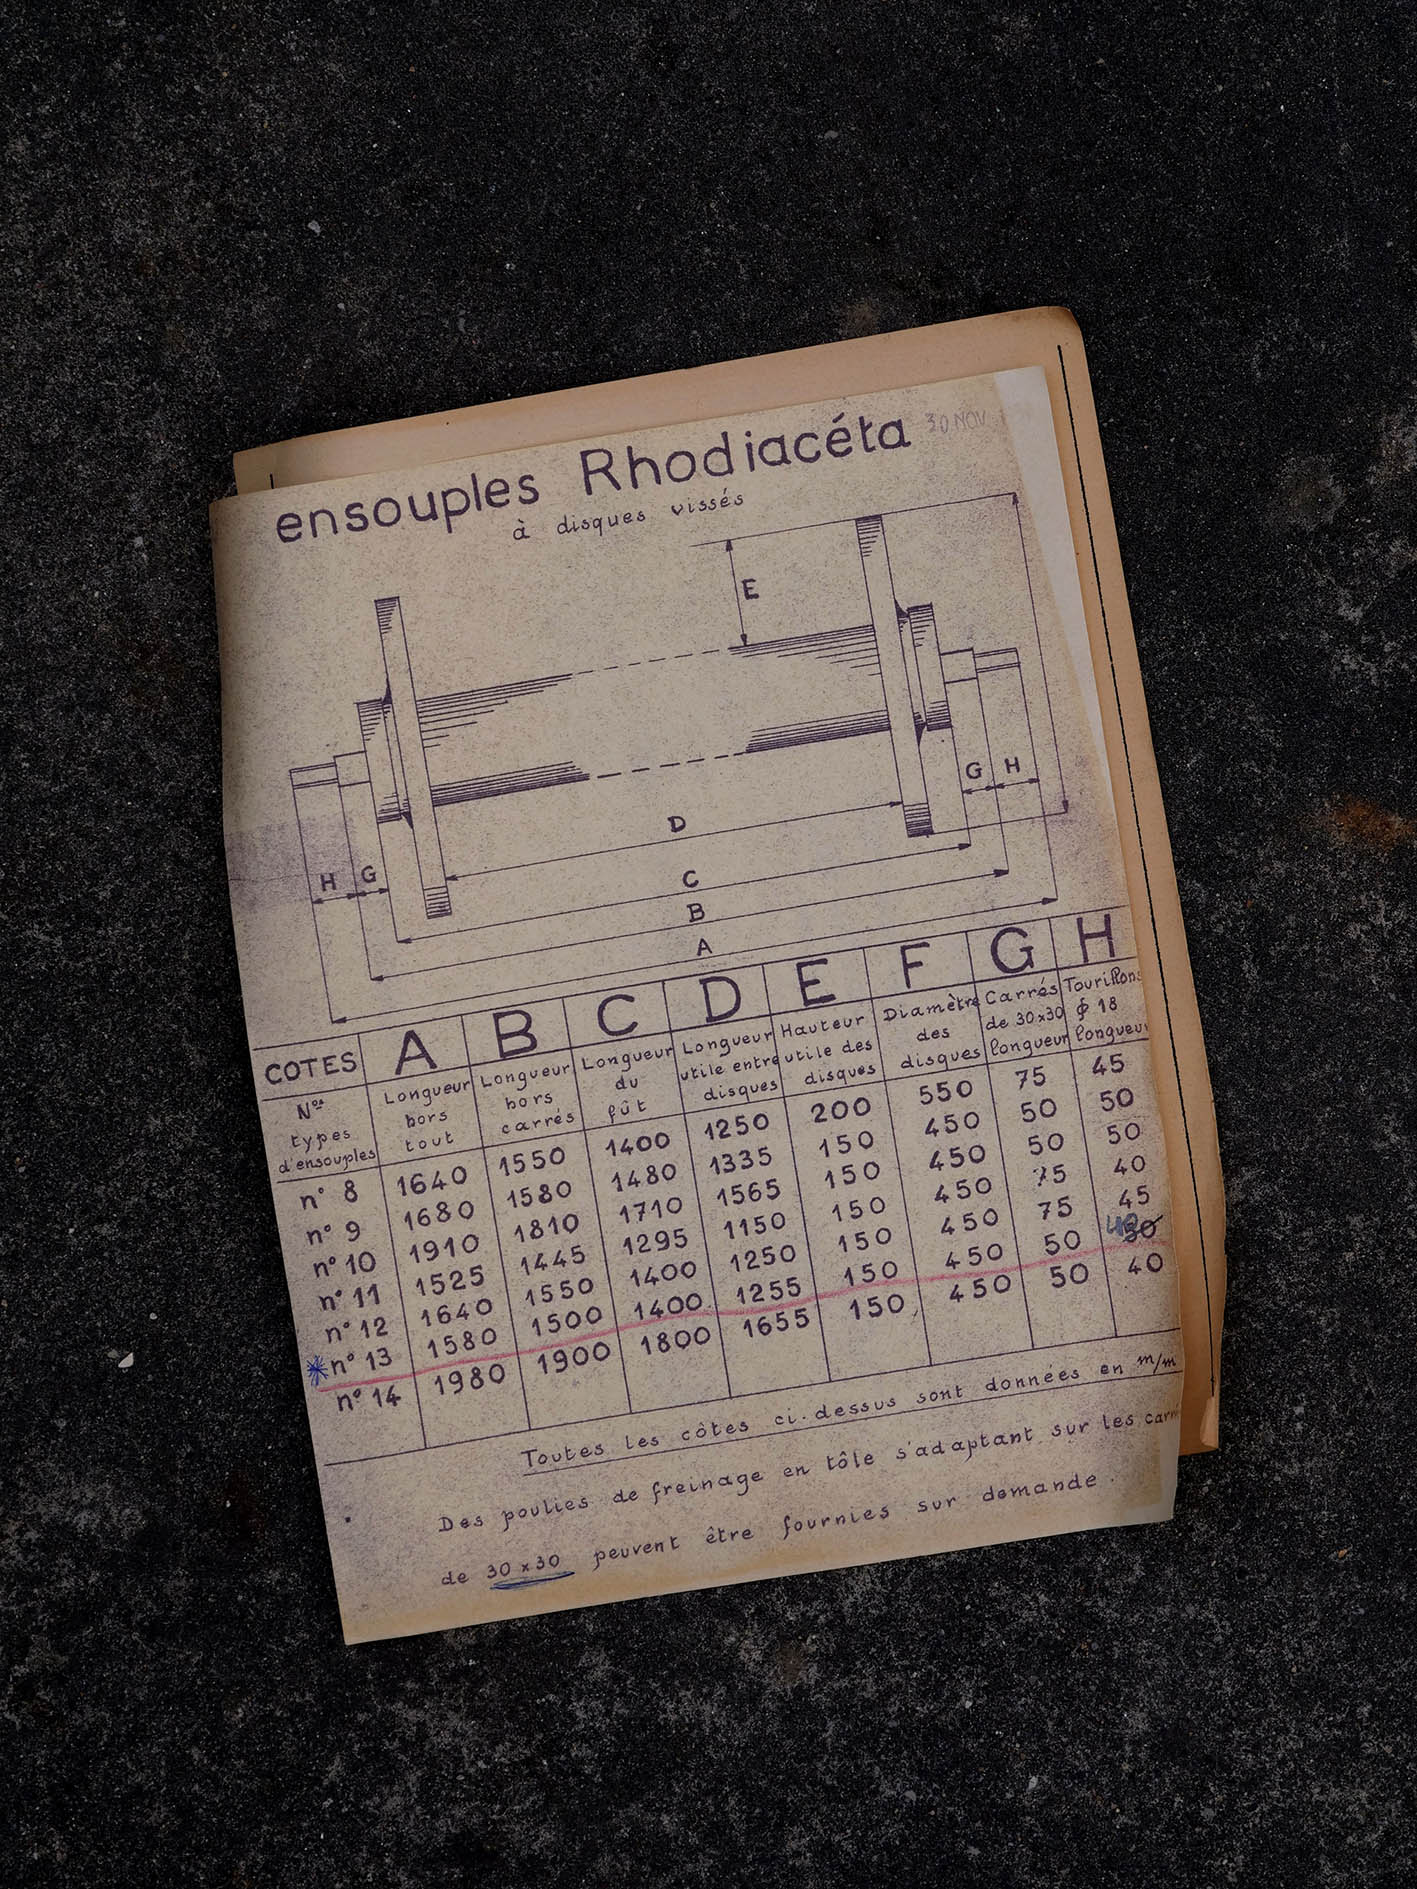 ensouples Rhodiacéta
30 NOV
à disques vissés
E
G H
D
H G
C
B
A
COTES A B C D E F G H
Nos types d'ensouples
Longueur hors tout
Longueur hors carrés
Longueur du fût
Longueur utile entre disques
Hauteur utile des disques
Diamètre des disques
Carrés de 30x30 longueur
Tourillons ϕ 18 longueur
n° 8 1640 1550 1400 1250 200 550 75 45
n° 9 1680 1580 1480 1335 150 450 50 50
n° 10 1910 1810 1710 1565 150 450 50 50
n° 11 1525 1445 1295 1150 150 450 75 40
n° 12 1640 1550 1400 1250 150 450 75 45
* n° 13 1580 1500 1400 1255 150 450 50
n° 14 1980 1900 1800 1655 150 450 50 40
Toutes les côtes ci-dessus sont données en m/m
Des poulies de freinage en tôle s'adaptant sur les
de 30 x 30 peuvent être fournies sur demande.